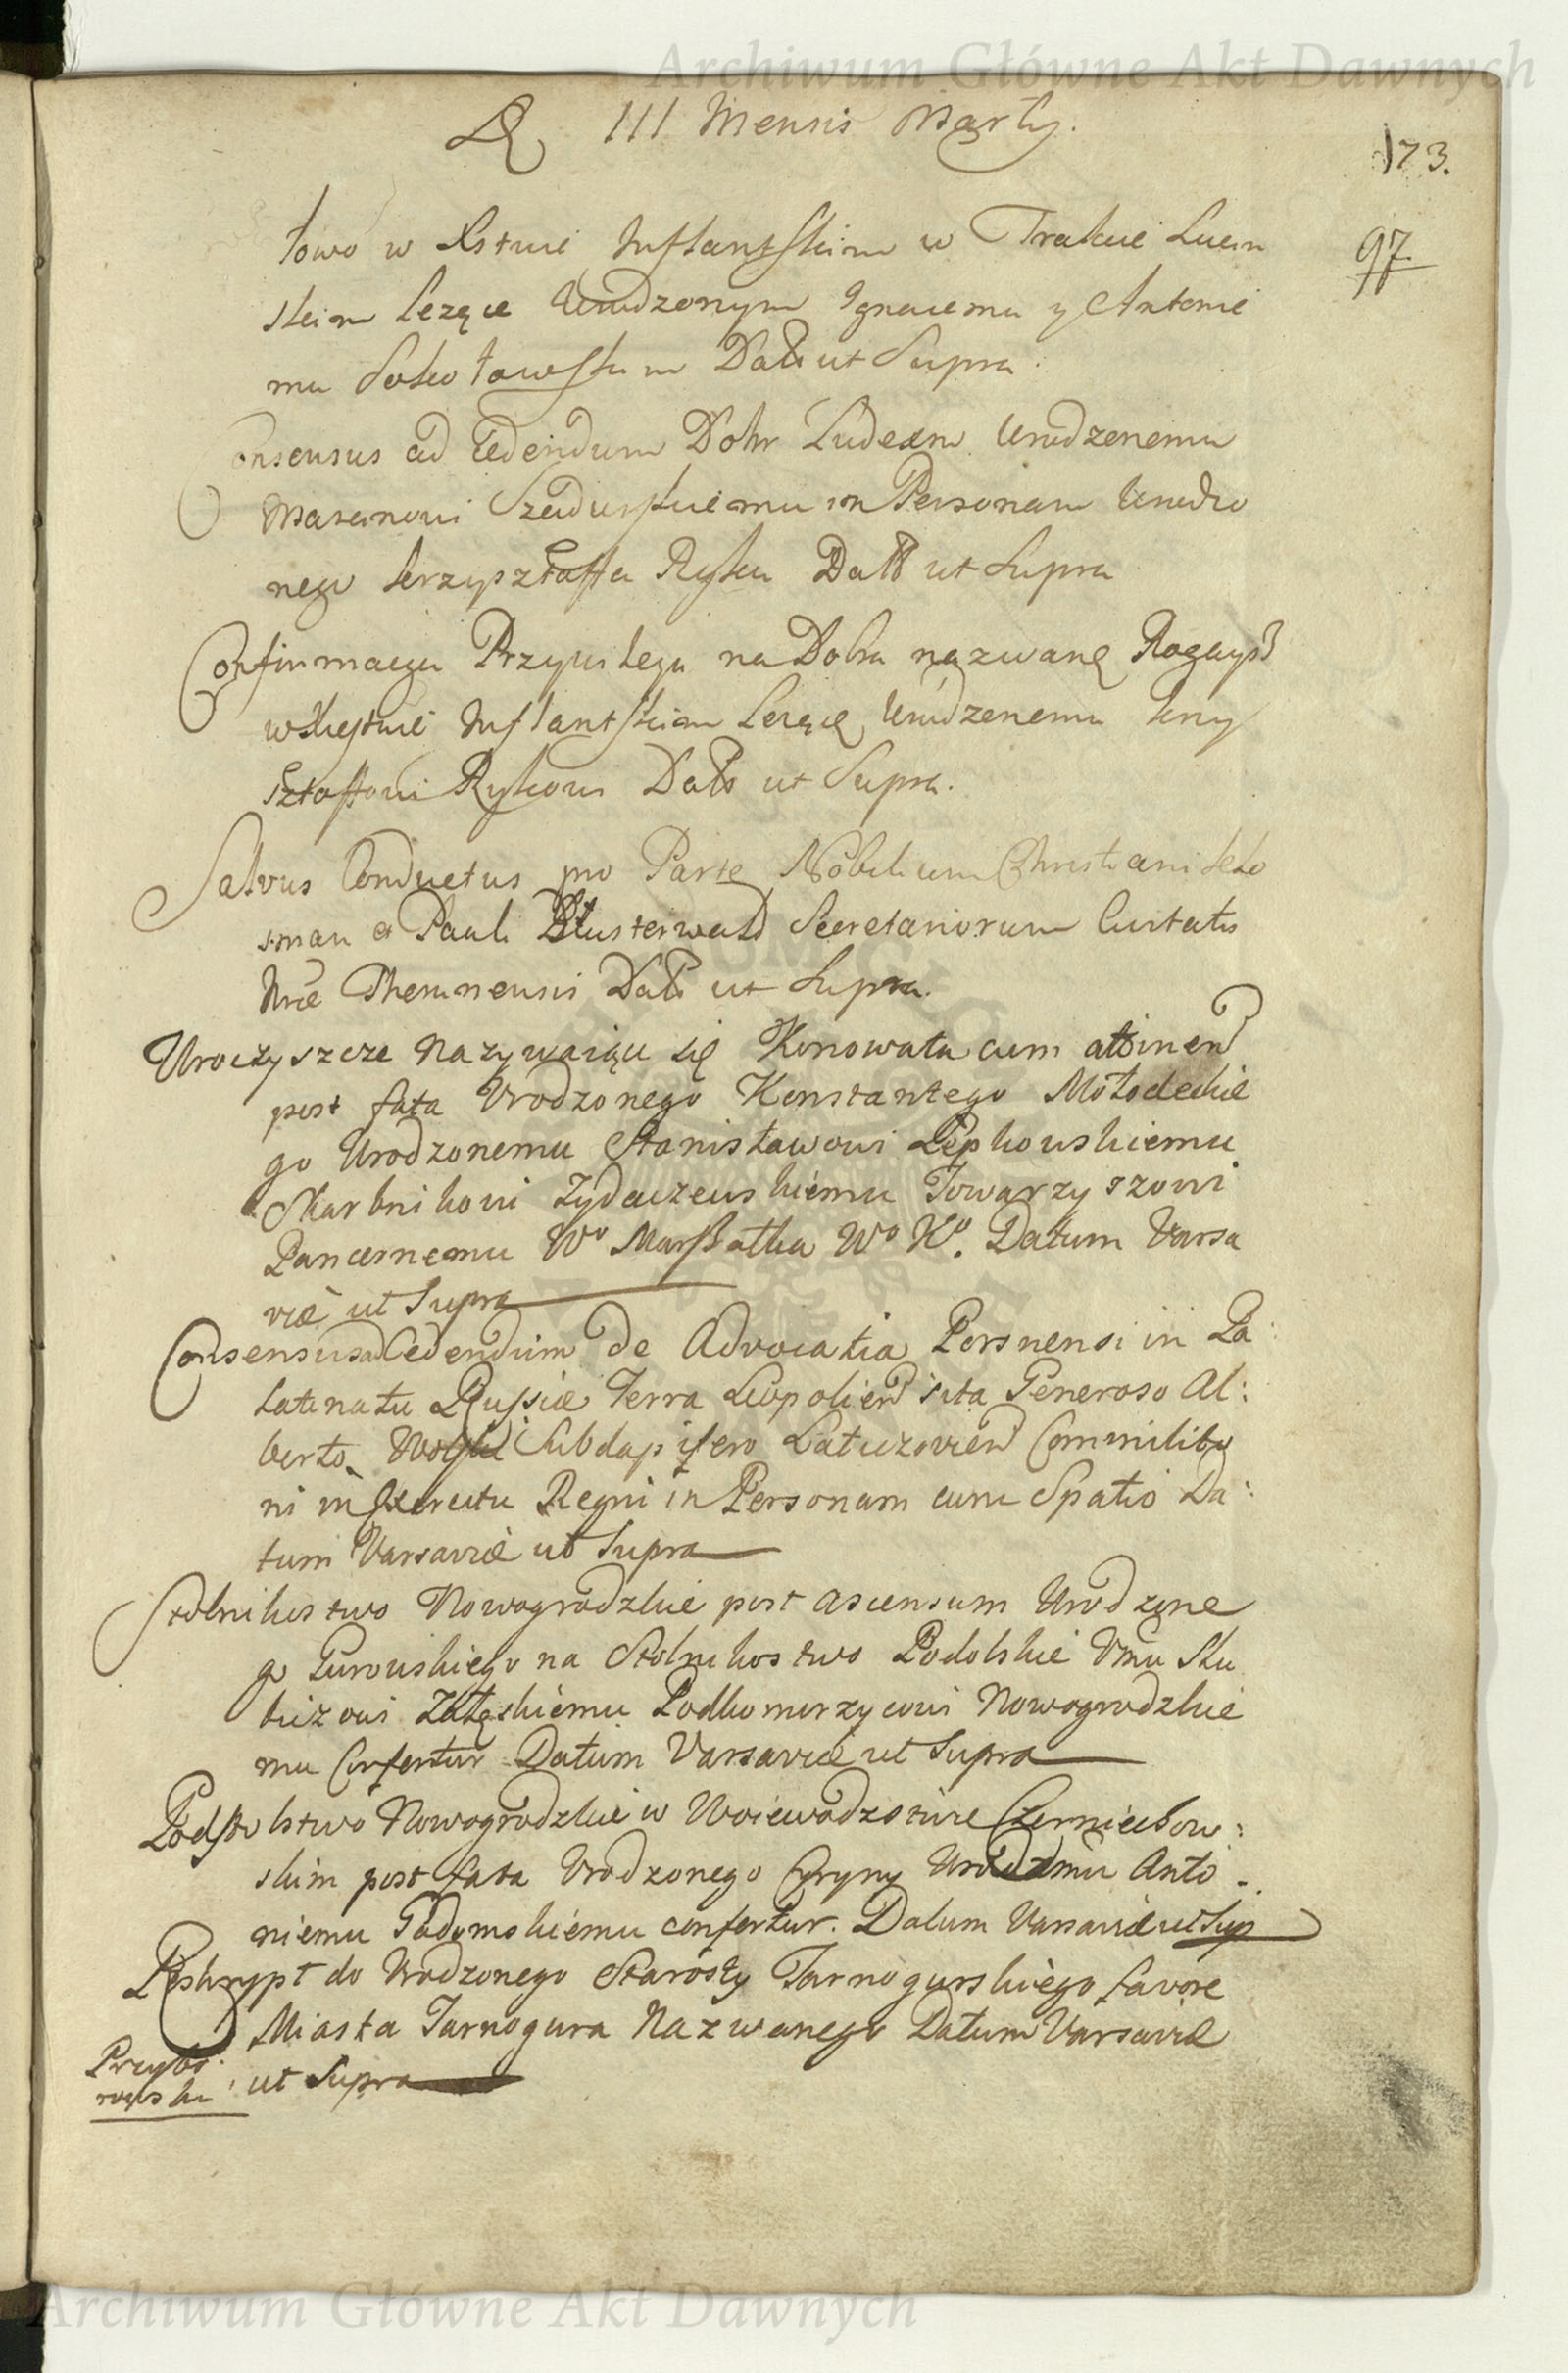 Archiwum Główne Akt Dawnych
D III Mensis Martij.
173.
97.
towo w Xstwie Inflantskim w Trakcie Lucin
skim lezące Urodzonym Ignacemu y Antonie
mu Sokołowskim Datt ut Supra.
Consensus ad Cedendum Dobr Ludexn Urodzenemu
Marcinowi Szadurskiemu in Personam Urodzo
nego krzysztaffa Ryka Datt ut Supra
Confirmacya Przywilegu na Dobra nazwane
w Xięstwie Inflantskim Lezące Urodzenemu krzy
sztaffowi Rykowi Datt ut Supra.
Salvus Conductus pro Parte Nobilium Christiani
et Pauli Secretariorum Civitatis
Nræ Datt ut Supra.
Uroczyszcze Nazywaiące się Konowata cum attinen
post fata Urodzonego Konstantego Mołodeckie
go Urodzonemu Stanisławowi Łępkowskiemu
Skarbnikowi Zydaczewskiemu Towarzyszowi
Pancernemu Wo Marszałka Wo Ko. Datum Varsa
viæ ut Supra
Consensus ad Cedendum de Advocatia Porsnensi in Pa:
latinatu Russiæ Terra Leopolien sita Generoso Al:
berto Subdapifero Latyczovien Commilito
ni in Exercitu Regni in Personam cum Spatio Da:
tum Varsaviæ ut Supra
Stolnikostwo Nowogrodzkie post ascensum Urodzone
go Gurowskiego na Stolnikostwo Podolskie Vrmu Sta
Załęskiemu Podkomorzycowi Nowogrodzkie
mu Confertur Datum Varsaviæ ut Supra
Podstolstwo Nowogrodzkie w Woiewodztwie Czerniechow:
skim post fata Urodzonego Cyryny Anto
niemu Gadomskiemu confertur. Datum Varsaviæ ut Sup
Reskrypt do Urodzonego Starosty Tarnogurskiego favore
Miasta Tarnogura Nazwanego Datum Varsaviæ
ut Supra
Archiwum Główne Akt Dawnych